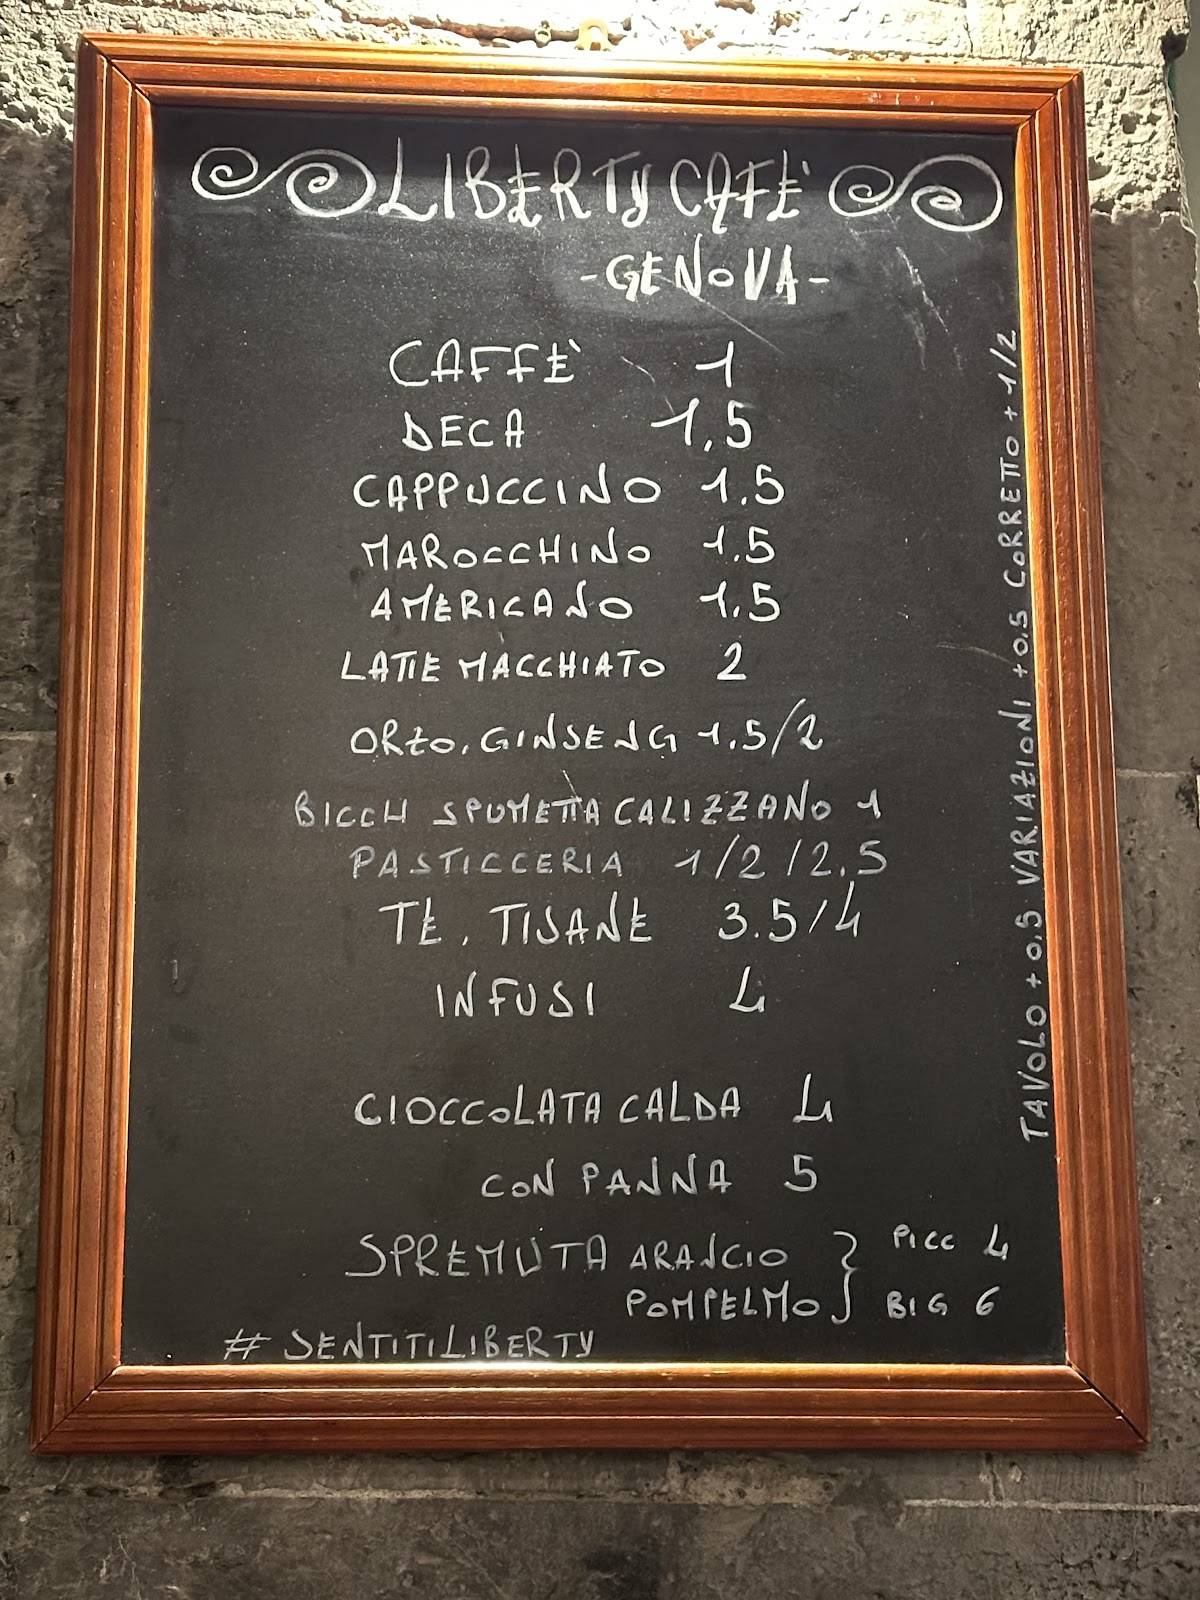 LIBERTY CAFE'
-GENOVA-
CAFFÈ 1
DECA 1,5
CAPPUCCINO 1.5
MAROCCHINO 1.5
AMERICANO 1.5
LATTE MACCHIATO 2
ORZO, GINSENG 1.5/2
BICCH SPUMETTA CALIZZANO 1
PASTICCERIA 1/2/2.5
TÈ, TISANE 3.5/4
INFUSI 4
CIOCCOLATA CALDA 4
CON PANNA 5
SPREMUTA ARANCIO } PICC 4
POMPELMO } BIG 6
#SENTITILIBERTY
TAVOLO +0,5 VARIAZIONI +0.5 CORRETTO +1/2